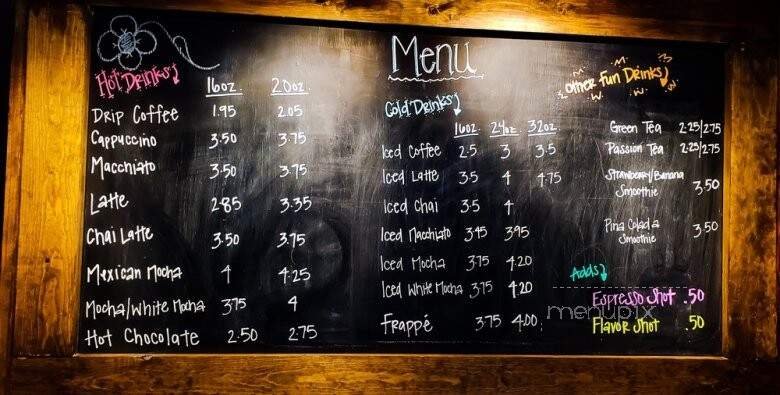 Menu
Hot Drinks
16oz. 20oz.
Drip Coffee 1.95 2.05
Cappuccino 3.50 3.75
Macchiato 3.50 3.75
Latte 2.85 3.35
Chai Latte 3.50 3.75
Mexican Mocha 4 4.25
Mocha/White Mocha 3.75 4
Hot Chocolate 2.50 2.75
Cold Drinks
16oz. 24oz. 32oz.
Iced Coffee 2.5 3 3.5
Iced Latte 3.5 4 4.75
Iced Chai 3.5 4
Iced Macchiato 3.45 3.95
Iced Mocha 3.75 4.20
Iced White Mocha 3.75 4.20
Frappé 3.75 4.00
Other Fun Drinks
Green Tea 2.25/2.75
Passion Tea 2.25/2.75
Strawberry/Banana
Smoothie 3.50
Pina Colada
Smoothie 3.50
Adds
Espresso Shot .50
Flavor Shot .50
menupix